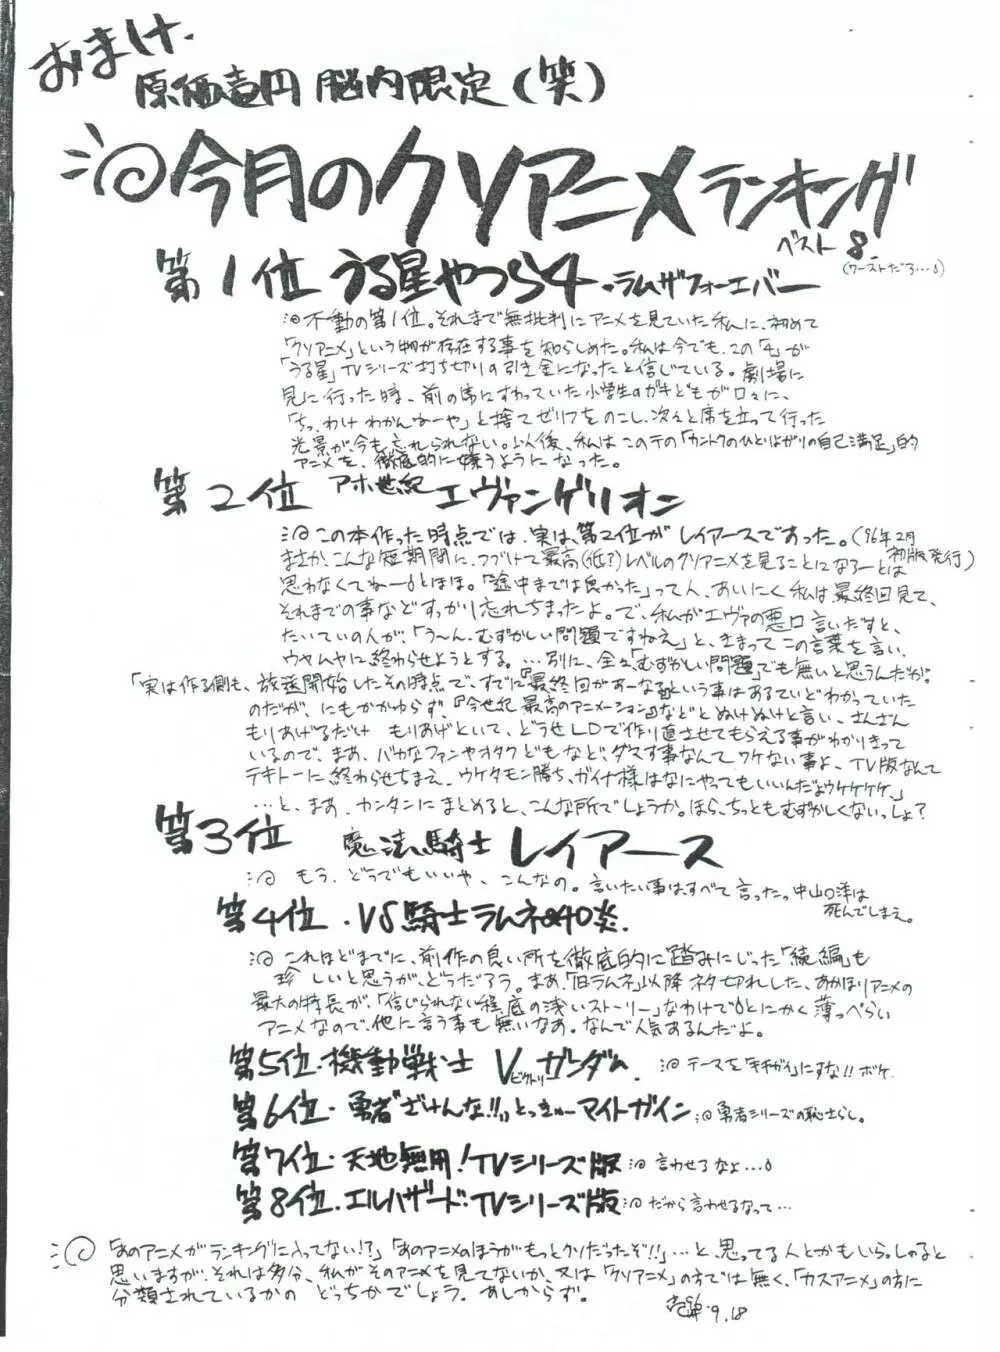 おまけ.
原価壱円 脳内限定(笑)
今月のクソアニメランキング
ベスト8.
(ワーストだろ…)
第1位 うる星やつら4・ラムザフォーエバー
不動の第1位。それまで無批判にアニメを見ていた私に、初めて
「クソアニメ」という物が存在する事を知らしめた。私は今でも、この「4」が
「うる星」TVシリーズ打ち切りの引き金になったと信じている。劇場に
見に行った時、前の席にすわっていた小学生のガキどもが口々に、
「ちっ、わけわかんねーや」と捨てゼリフをのこし、次々と席を立って行った
光景が、今も忘れられない。以後、私はこの手の「カントクのひとりよがりの自己満足」的
アニメを、徹底的に嫌うようになった。
第2位 アホ世紀エヴァンゲリオン
この本作った時点では、実は、第2位がレイアースであった。('96年2月
初版発行)
まさか、こんな短期間に、つづけて最高(低?)レベルのクソアニメを見ることになろーとは
思わなくてねーとほほ。「途中までは良かった」って人、あいにく私は最終回見て、
それまでの事などすっかり忘れちまったよ。で、私がエヴァの悪口言いだすと、
たいていの人が、「う〜ん、むずかしい問題ですねえ」と、きまってこの言葉を言い、
ウヤムヤに終わらせようとする。…別に、全々「むずかしい問題」でも無いと思うんだが。
「実は作る側も、放送開始したその時点で、すでに『最終回があーなる』という事はあるていどわかっていた
のだが、にもかかわらず、『今世紀最高のアニメーション』などとぬけぬけと言い、さんざん
もりあげるだけ もりあげといて、どうせLDで作り直させてもらえる事がわかりきって
いるので、まあ、バカなファンやオタクどもなど、ダマす事なんてワケない事よ、TV版なんて
テキトーに終わらせちまえ、ウケタモン勝ち、ガイナ様はなにやってもいいんだよウケケケケ。」
…と、まあ、カンタンにまとめると、こんな所でしょうか。ほら、ちっともむずかしくないっしょ?
第3位 魔法騎士レイアース
もう、どうでもいいや、こんなの。言いたい事はすべて言った。中山○洋は
死んでしまえ。
第4位・VS騎士ラムネ&40炎.
これほどまでに、前作の良い所を徹底的に踏みにじった「続編」も
珍しいと思うが、どうだろう。まあ、「旧ラムネ」以降ネタ切れした、あかほりアニメの
最大の特長が、「信じられない程底の浅いストーリー」なわけでとにかく薄っぺらい
アニメなので、他に言う事も無いなあ。なんで人気あるんだよ。
第5位・機動戦士Vガンダム.
ビクトリー
テーマを「キチガイ」にすな!!ボケ.
第6位・勇者"ざけんな!!"とっきゅーマイトガイン 勇者シリーズの恥さらし。
第7位・天地無用!TVシリーズ版 言わせるなよ…
第8位・エルハザード・TVシリーズ版 だから言わせるなって…
「あのアニメがランキングに入ってない!?」「あのアニメのほうがもっとクソだったぞ!!」…と、思ってる人とかもいらっしゃると
思いますが、それは多分、私がそのアニメを見てないか、又は「クソアニメ」の方では無く、「カスアニメ」の方に
分類されているかの どっちかでしょう。あしからず。
9.18